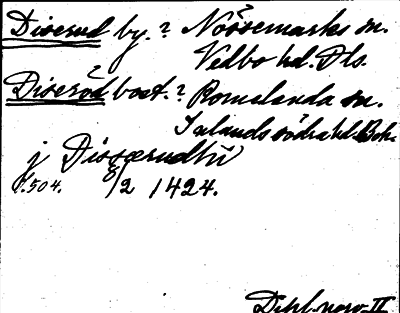 Diserud by.? Nössemarks sn.
Vedbo hd. Dls.
Diseröd bost.? Romelanda sn.
Inlands södra hd. Boh.
j Disærudhu
s. 504. 8/2 1424.
Dipl. norv. II